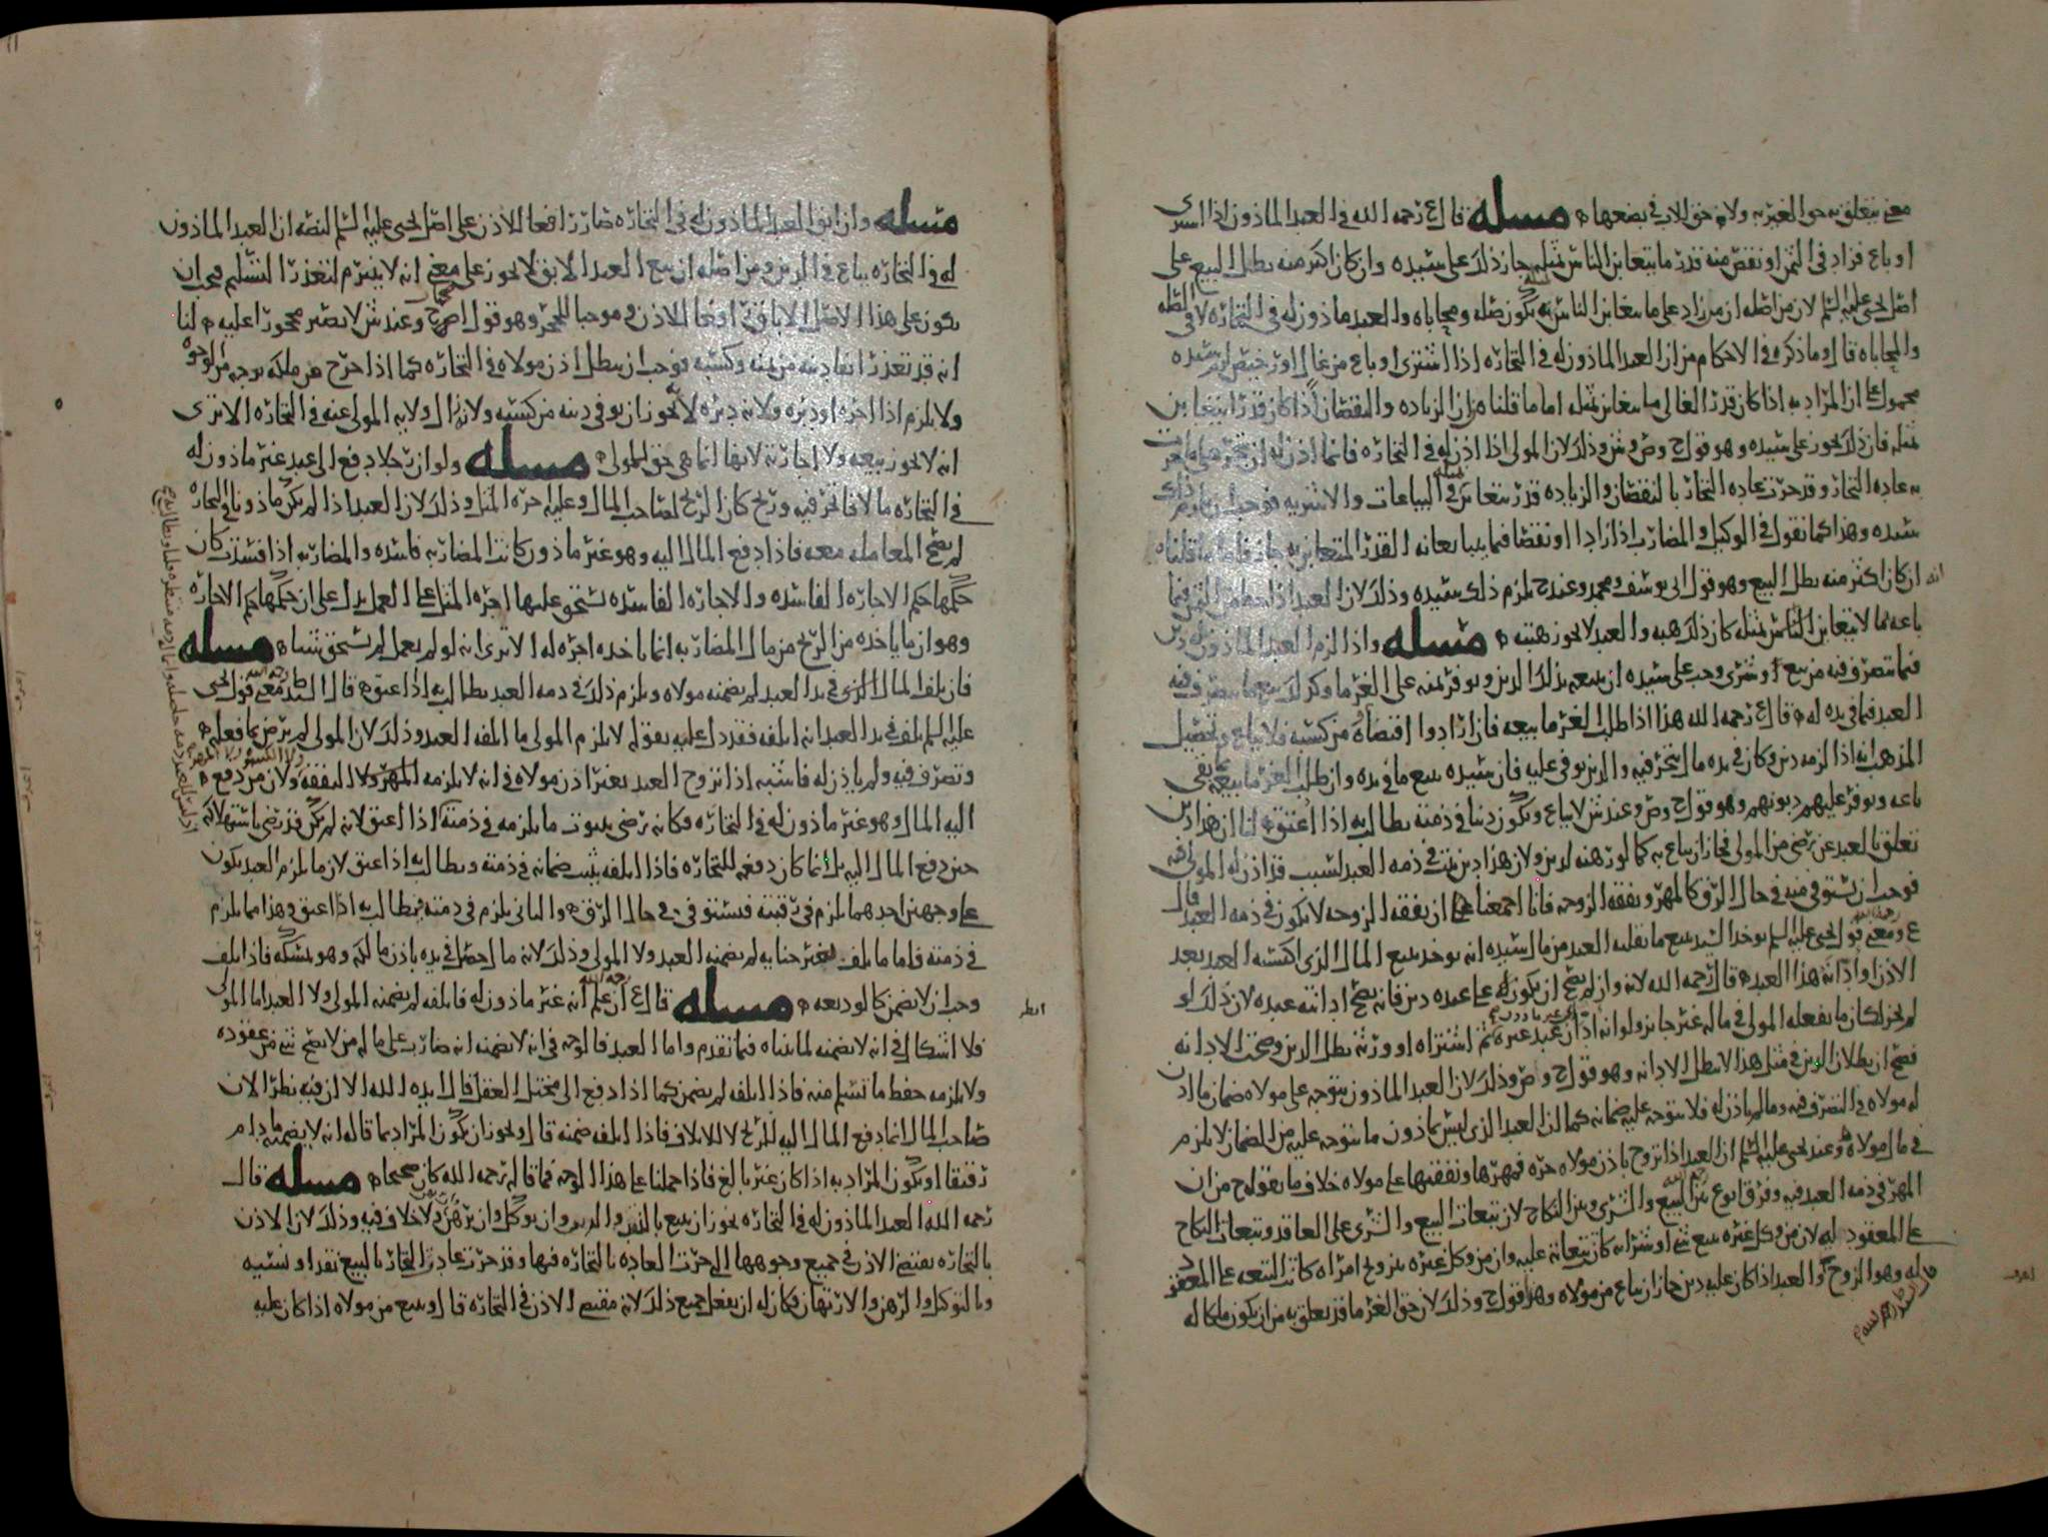 معنى يتعلق به حق الغير به ولانه حق الاب في بضعها مسله قال ع رحمه الله في العبد الماذون اذا اشترى
او باع فزاد في الثمن او نقص منه قدر ما يتغابن الناس بمثله جاز ذلك على سيده وان كان اكثر منه بطل البيع على
اصل يحيى عليه السلم لان من اصله ان من زاد على ما يتغابن الناس بمثله يكون صله ومحاباه والعبد ماذون له في التجاره لا في الصله
والمحاباه قال وما ذكره في الاحكام من ان العبد الماذون له في التجاره اذا اشترى او باع من غال او رخيص لزم سيده
محمول على ان المراد به اذا كان قدر الغالي مما يتغابن بمثله اما ما قلناه من ان الزياده والنقصان اذا كان قدرا يتغابن
بمثله فان ذلك يجوز على سيده وهو قول ح وص وش وذلك لان المولى اذا اذن له في التجاره فانما اذن له ان يتجر على ما جرت
به عاده التجار وقد جرت عاده التجار بالنقصان والزياده قدر يتغابن بمثله في البياعات والاشريه فوجب ان يلزم ذلك
سيده وهذا كما نقول في الوكيل والمضارب اذا زادا او نقصا فيما يبايعانه القدر المتغابن به جاز فاما ما قلناه
ان كان اكثر منه بطل البيع وهو قول ابي يوسف ومحمد وعند ح يلزم ذلك سيده وذلك لان العبد اذا حط من الثمن فيما
باعه مما لا يتغابن الناس بمثله كان ذلك هبه والعبد لا يجوز هبته مسله واذا لزم العبد الماذون له دين
فيما تصرف فيه من بيع او شرى وجب على سيده ان يبيعه بذلك الدين ويوفر ثمنه على الغرما وكذلك يبيع ما يتصرف فيه
العبد فما في يده له قال ع رحمه الله هذا اذا طلب الغرما بيعه فان ارادوا اقتضاه من كسبه فلا يباع وتحصيل
المذهب انه اذا لزمه دين وكان في يده مال يتجر فيه والدين يوفى عليه فان سيده يبيع ما في يده وان طلب الغرما بيعه بما بقي
باعه ويوفر عليهم ديونهم وهو قول ح وص وعند ش لا يباع ويكون دينا في ذمته يطالب به اذا اعتق لنا ان هذا دين
تعلق بالعبد عن رضى من المولى فجاز ان يباع به كما لو رهنه لدين ولان هذا دين ثبت في ذمه العبد لسبب قد اذن له المولى فيه
فوجب ان يستوفى منه في حال الرق كالمهر ونفقه الزوجه فانا اجمعنا على ان نفقه الزوجه لا تكون في ذمه العبد قال
ع ومعنى قول يحيى عليه السلم يوخذ السيد ببيع ما يقلبه العبد من مال سيده انه يوخذ ببيع المال الذي اكتسبه العبد بعد
الاذن وادانه هذا العبد قال رحمه الله لانه وان لم يصح ان يكون له على عبده دين فانه يصح ادانته عبده لان ذلك لو
لم يجز لكان ما يفعله المولى في ماله غير جايز ولو انه ادان عبد غيره ثم اشتراه او ورثه بطل الدين وصحت الادانه
فصح ان بطلان الدين في مثل هذا لا يبطل الادانه وهو قول ح وص وذلك لان العبد الماذون يتوجه على مولاه ضمان ما اذن
له مولاه في التصرف فيه وما لم ياذن له فلا يتوجه عليه ضمانه كما ان العبد الذي ليس بماذون ما يتوجه عليه من الضمان لا يلزم
في مال مولاه وعند يحيى عليه السلم ان العبد اذا تزوج باذن مولاه حره فمهرها ونفقتها على مولاه خلاف ما يقوله ح من ان
المهر في ذمه العبد فيه وفرق ابو ع بين البيع والشرى وبين النكاح لان تبعات البيع والشرى على العاقد وتبعات النكاح
على المعقود له لان من وكل غيره ببيع شي او شرايه كانت تبعاته عليه وان من وكل غيره بتزويج امراه كانت التبعه على المعقود
له وهو الزوج والعبد اذا كان عليه دين جاز ان يباع من مولاه وهذا قول ح وذلك لان حق الغرما قد تعلق به من ان يكون ملكا له
مسله وان ابق العبد الماذون له في التجاره صار رافعا للاذن على اصل يحيى عليه السلم لنصه ان العبد الماذون
له في التجاره يباع في الدين ومن اصله ان بيع العبد الابق لا يجوز على معنى انه لا ينبرم لتعذر التسليم فيجب ان
يكون على هذا الاصل الاباق رافعا للاذن وموجبا للحجر وهو قول اصح ح وعند ش لا يصير محجورا عليه لنا
انه قد تعذر ايفا دينه من ثمنه وكسبه فوجب ان يبطل اذن مولاه في التجاره كما اذا خرج عن ملكه بوجه من الوجوه
ولا يلزم اذا اجره او دبره ولانه دبره لانه يجوز ان يوفي دينه من كسبه ولان زوال ولايه المولى عنه في التجاره الا ترى
انه لا يجوز بيعه ولا اجازته لانها انما هي حق للمولى مسله ولو ان رجلا دفع الى عبد غير ماذون له
في التجاره مالا فاتجر فيه وربح كان الربح لصاحب المال وعليه اجره المثل وذلك لان العبد اذا لم يكن ماذونا في التجاره
لم يصح المعامله معه فاذا دفع المال اليه وهو غير ماذون كانت المضاربه فاسده والمضاربه اذا فسدت كان
حكمها حكم الاجاره الفاسده والاجاره الفاسده تستحق عليها اجره المثل على العمل يدل على ان حكمها حكم الاجاره
وهو ان ما ياخذه من الربح من مال المضاربه انما ياخذه اجره له الا ترى انه لو لم يعمل لم يستحق شيئا مسله
فان تلف المال الذي في يد العبد لم يضمنه مولاه ويلزم ذلك في ذمه العبد يطالب به اذا عتق قال السيد معنى قول يحيى
عليه السلم تلف في يد العبد انه اتلفه فقد دل عليه بقوله لا يلزم المولى ما اتلفه العبد وذلك لان المولى لم يرض بما فعله
وتصرف فيه ولم ياذن له فاشبه اذا تزوج العبد بغير اذن مولاه في انه لا يلزمه المهر ولا النفقه ولان من دفع
اليه المال وهو غير ماذون له في التجاره فكانه رضي بثبوت ما يلزمه في ذمته اذا اعتق لانه لم يكن قد رضي باستهلاكه
حين دفع المال اليه بل انما كان دفعه للتجاره فاذا اتلفه يثبت ضمانه في ذمته ويطالب به اذا عتق لان ما يلزم العبد يكون
على وجهين احدهما يلزم في رقبته فيستوفى في حال الرق والثاني يلزم في ذمته فيطالب به اذا اعتق وهذا مما يلزم
في ذمته فاما ما تلف بغير جنايه لم يضمنه العبد ولا المولى وذلك لانه مال حصل في يده باذن مالكه وهو يمسكه فاذا تلف
وجب ان لا يضمن كالوديعه مسله قال ع ان علم انه غير ماذون له فاتلفه لم يضمنه المولى ولا العبد اما المولى
فلا اشكال في انه لا يضمنه لما بيناه فيما تقدم واما العبد فالوجه في انه لا يضمنه انه ضارب على مال من لا يصح شي من عقوده
ولا يلزمه حفظ ما تسلم منه فاذا اتلفه لم يضمن كما اذا دفع الى مختل العقل قال ايده الله الا ان فيه نظرا لان
صاحب المال انما دفع المال اليه للربح لا للاتلاف فاذا اتلفه ضمنه قال ويجوز ان يكون المراد بما قاله انه لا يضمنه ما دام
رقيقا او يكون المراد به اذا كان غير بالغ فاذا حملنا على هذا الوجه فما قاله رحمه الله كان صحيحا مسله قال
رحمه الله العبد الماذون له في التجاره يجوز ان يبيع بالنقد والدين وان يوكل وان يرهن ولا خلاف فيه وذلك لان الاذن
بالتجاره يقتضي الاذن في جميع وجوهها التي جرت العاده بالتجاره فيها وقد جرت عاده التجار بالبيع نقدا ونسيه
وبالتوكيل والرهن والارتهان فكان له ان يفعل جميع ذلك لانه مقتضى الاذن في التجاره قال ويبيع من مولاه اذا كان عليه